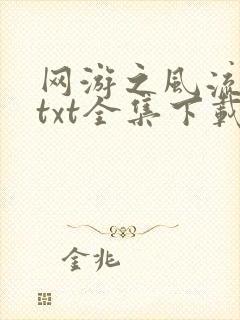 网游之风流
txt全集下载
金兆